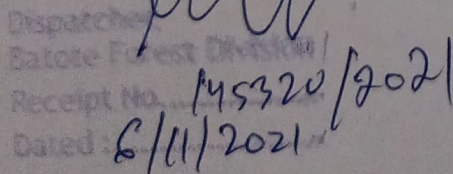 Dispatcher
Batote Forest Division/
Receipt No. 145320/2021
Dated: 6/11/2021